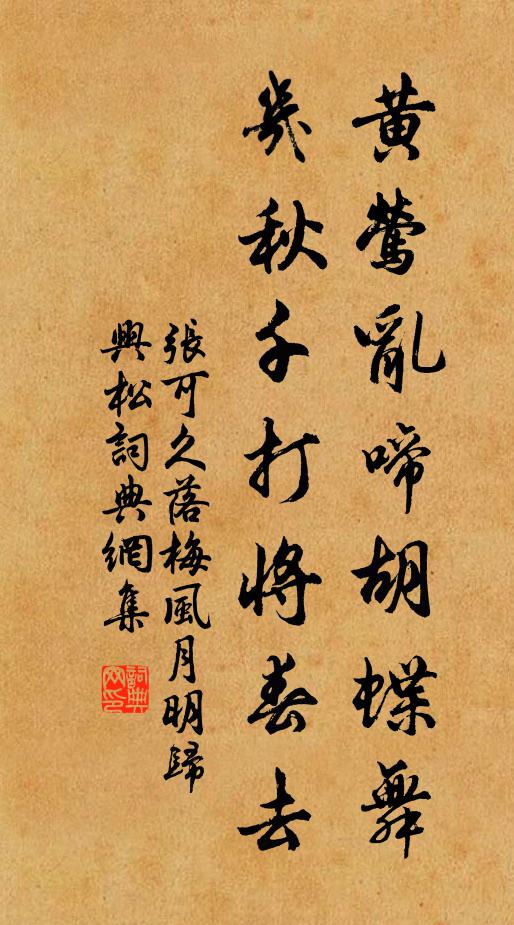 黃鶯亂啼胡蝶舞
幾秋千打將春去
張可久落梅風月明歸
興松詞典網集
詞典
网印